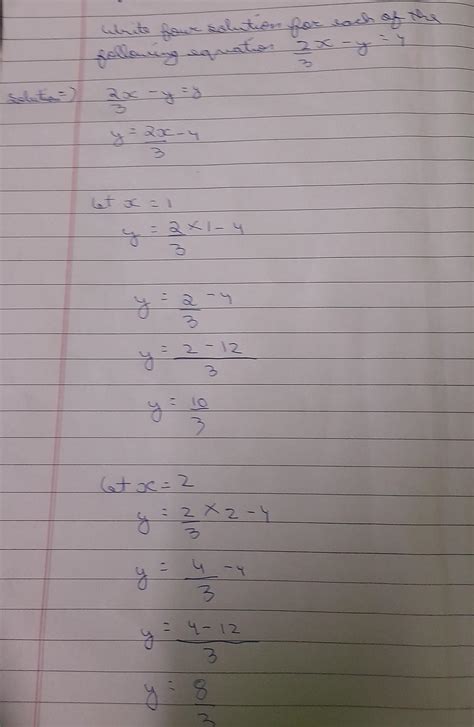 Write four solution for each of the
following equation 2/3 x - y = 4
solution => 2x/3 - y = y
y = 2x/3 - 4
let x = 1
y = 2/3 × 1 - 4
y = 2/3 - 4
y = (2 - 12)/3
y = 10/3
let x = 2
y = 2/3 × 2 - 4
y = 4/3 - 4
y = (4 - 12)/3
y = 8/3